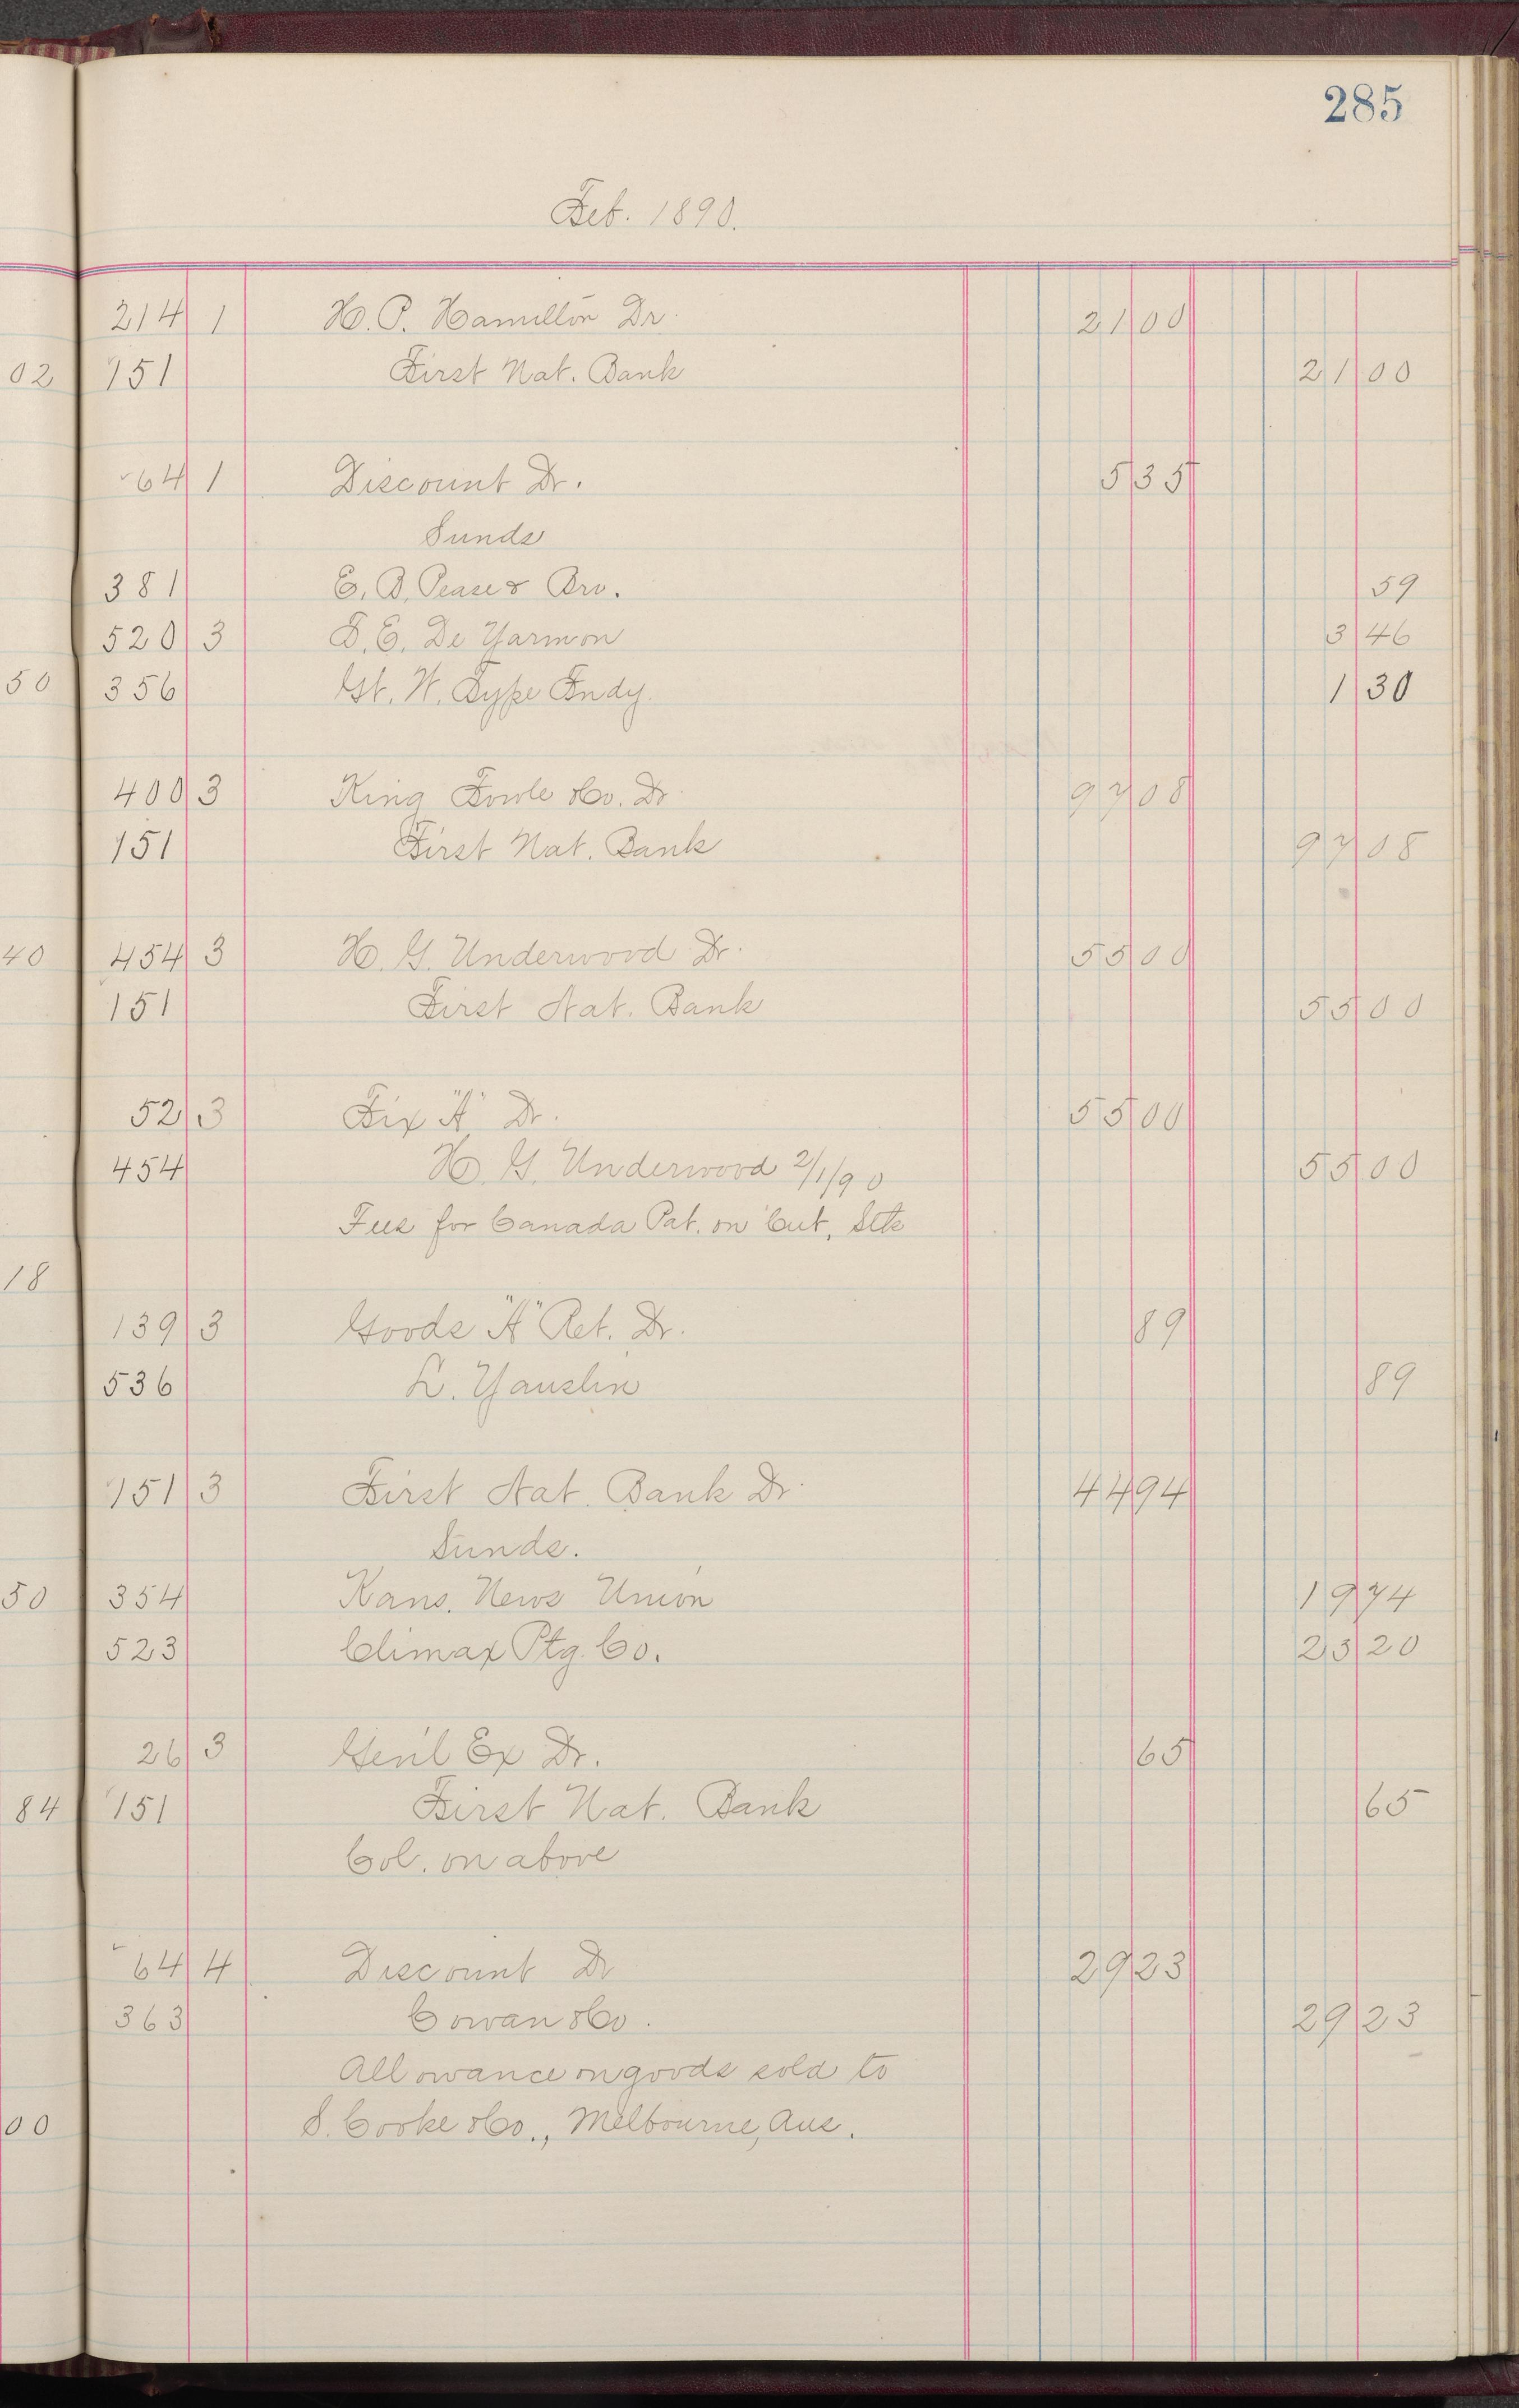 285
Feb. 1890.
214 1 H. P. Hamilton Dr. 21 00
02 151 First Nat. Bank 21 00
64 1 Discount Dr. 5 35
Sunds
381 E. B. Pease & Bro. 59
520 3 D. E. De Yarmon 3 46
50 356 Gt. W. Type Fndy. 1 30
400 3 King Fowle & Co. Dr 97 08
151 First Nat. Bank 97 08
40 454 3 H. G. Underwood Dr. 55 00
151 First Nat. Bank 55 00
52 3 Fix "A" Dr. 55 00
454 H. G. Underwood 2/1/90 55 00
Fees for Canada Pat. on Cut,
18
139 3 Goods "A" Ret. Dr. 89
536 L. Yauslin 89
151 3 First Nat. Bank Dr. 44 94
Sunds.
50 354 Kans. News Union 19 74
523 Climax Ptg. Co. 25 20
26 3 Gen'l Ex Dr. 65
84 151 First Nat. Bank 65
Col. on above
64 4 Discount Dr 29 23
363 Cowan & Co. 29 23
Allowance on goods sold to
00 S. Cooke & Co., Melbourne, Aus.